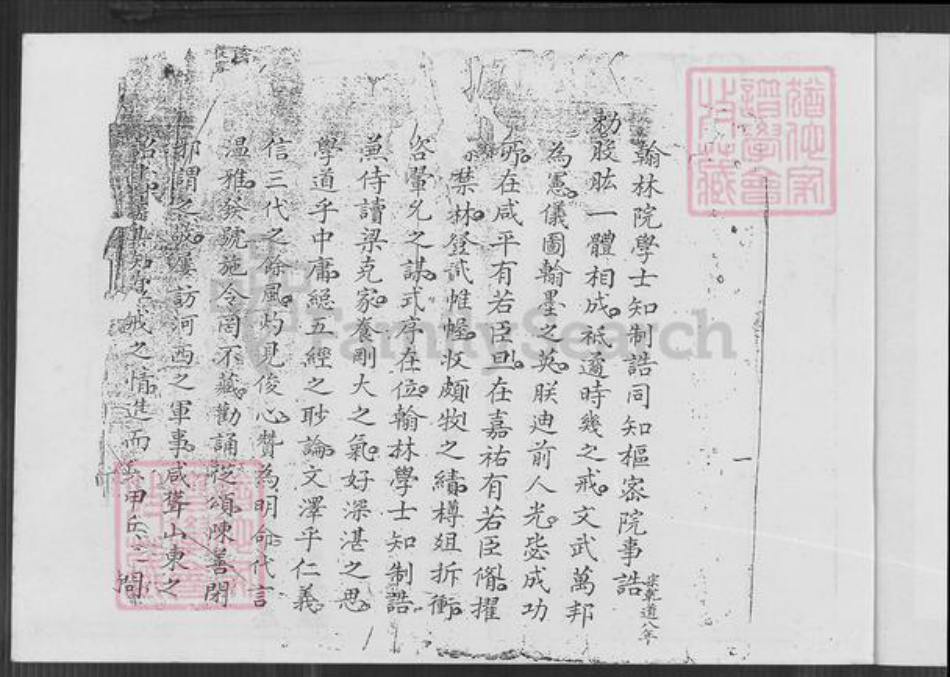 翰林院學士知制誥同知樞密院事誥 宋乾道八年
勑股肱一體相成。祗遹時幾之戒。文武萬邦
為憲。儀圖翰墨之英。朕迪前人光。毖成功
所。在咸平有若臣旦。在嘉祐有若臣脩。擢
禁林。登貳帷幄。收頗牧之績。樽俎折衝。
咨犖犖之謀。式序在位。翰林學士知制誥
兼侍讀梁克家。養剛大之氣。好深湛之思。
學道乎中庸。總五經之眇論。文澤乎仁義。
信三代之餘風。灼見俊心。贊為明命。代言
温雅。發號施令罔不臧。勸誦從頌。陳善閉
邪謂之敬。屢訪河西之軍事。咸聳山東之
之情。進而 甲兵之間
猶他家譜學會收藏
FamilySearch